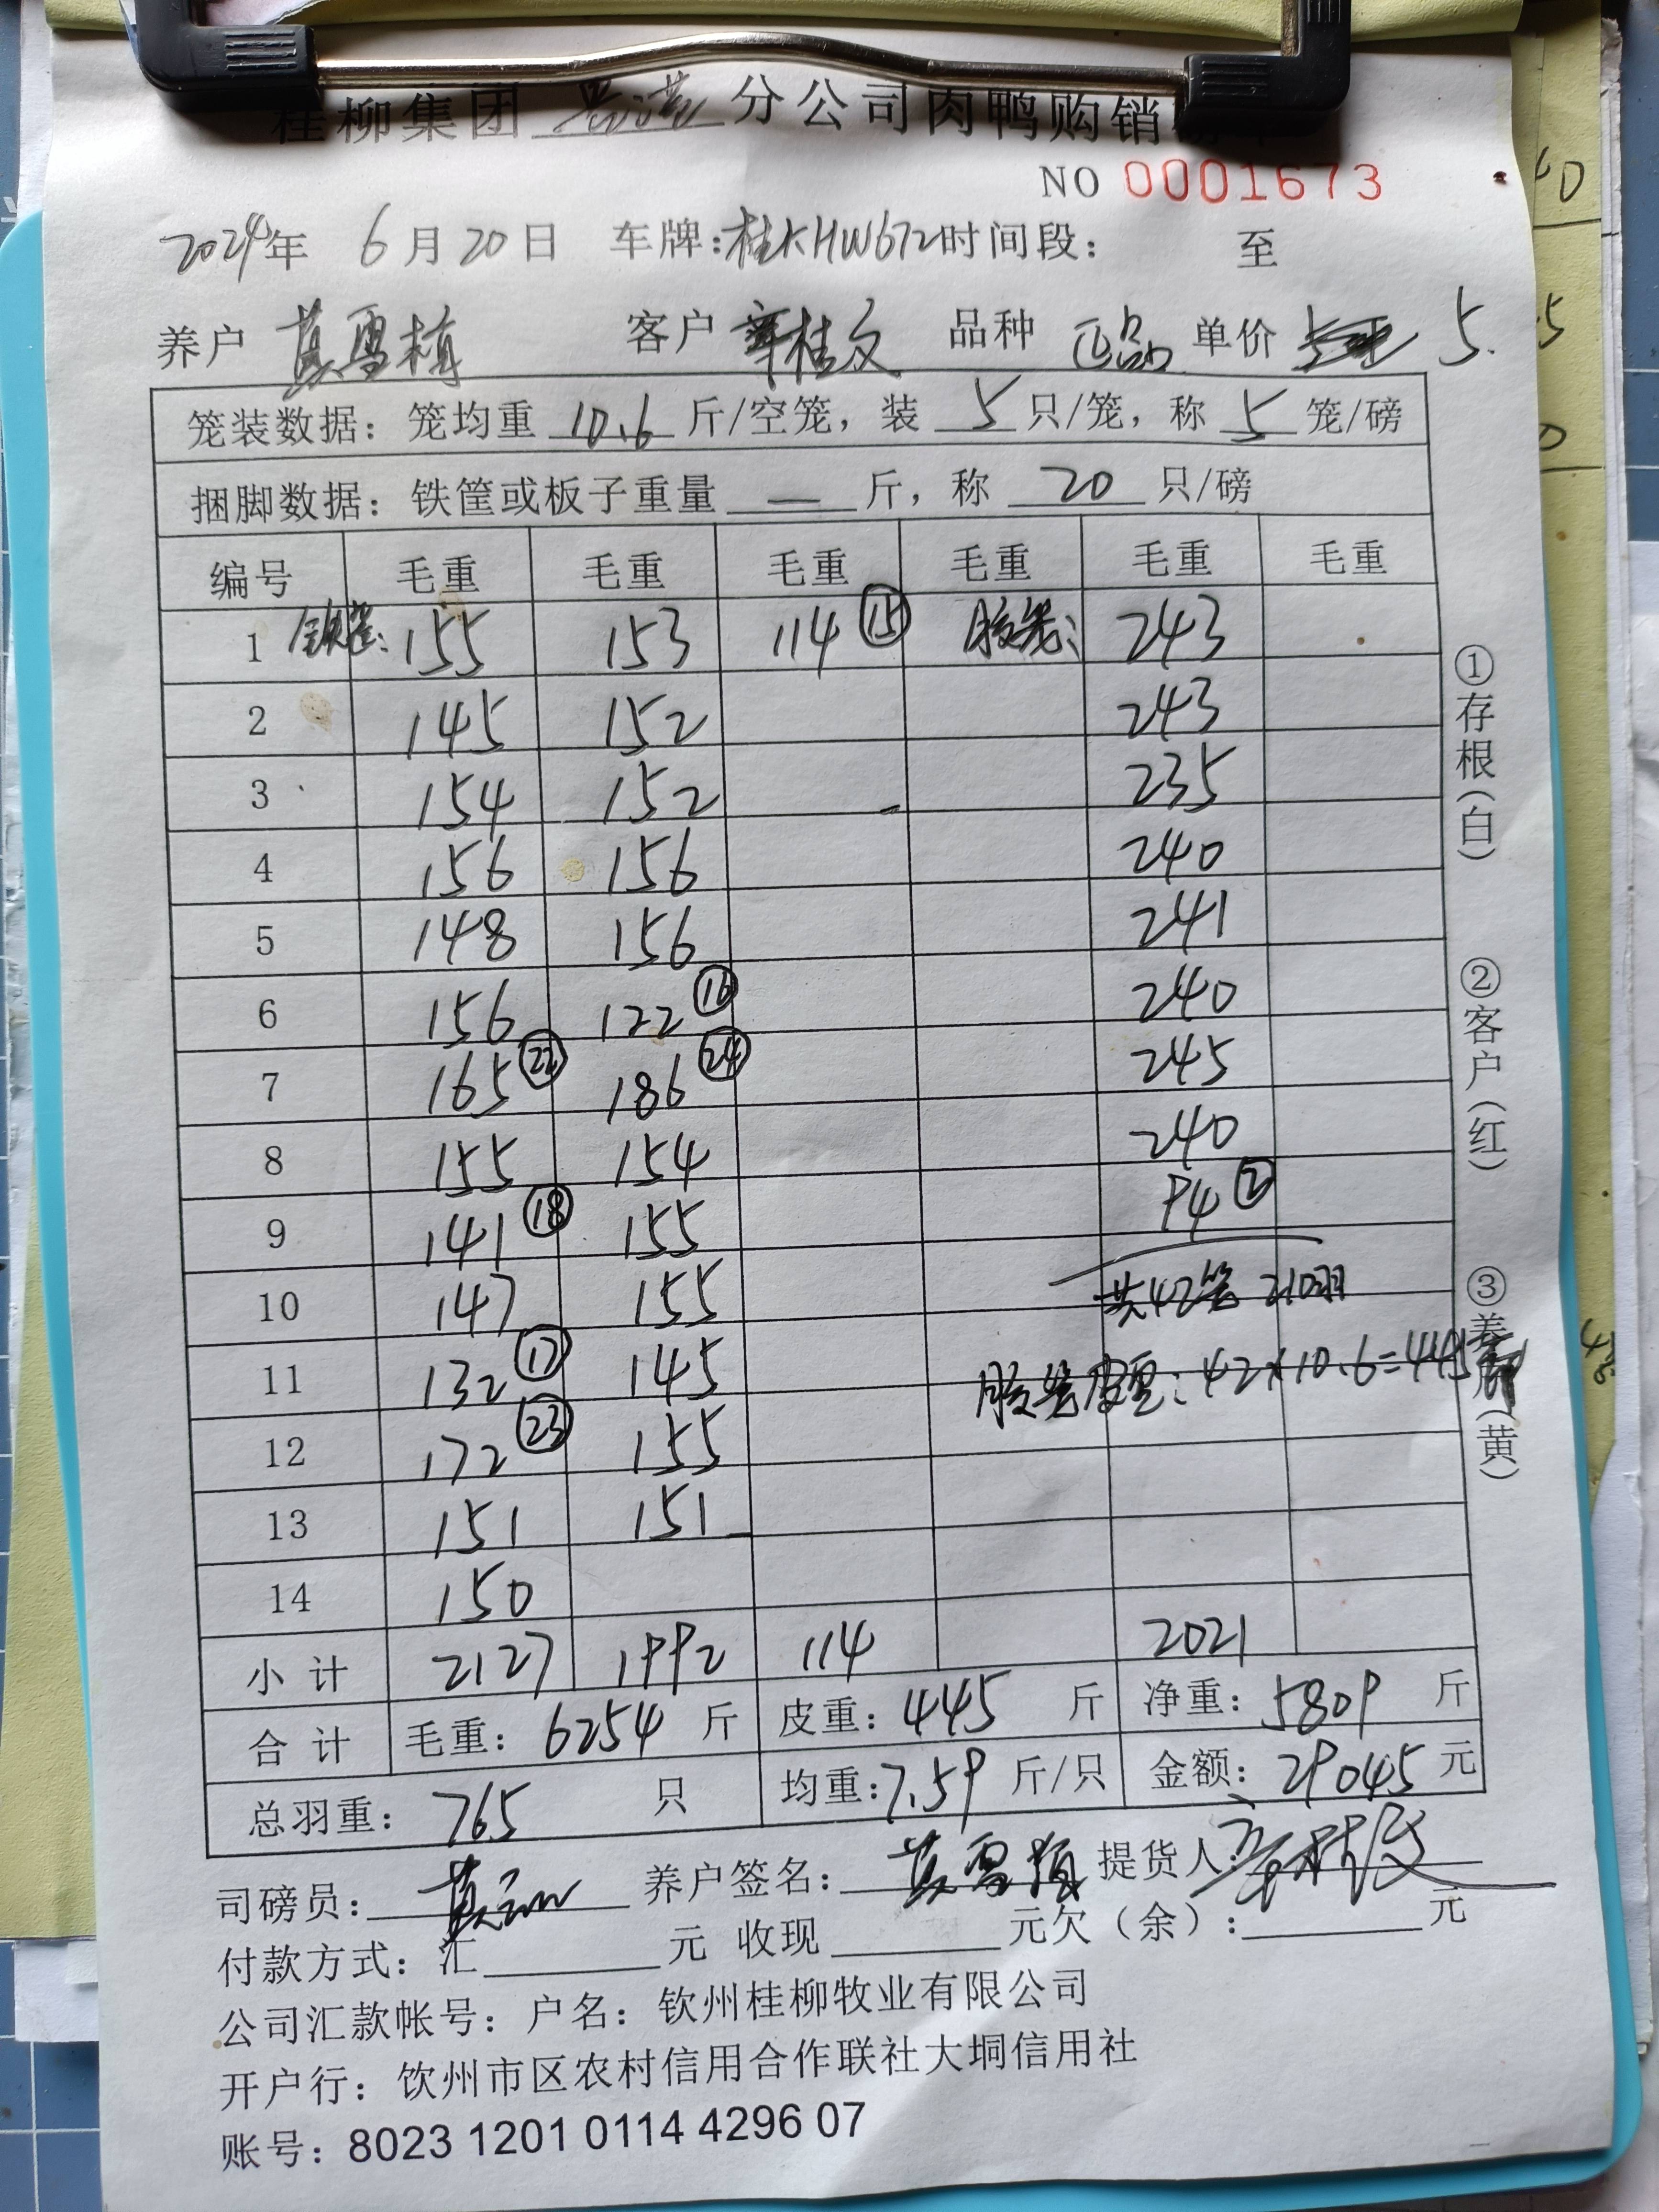 桂柳集团 分公司肉鸭购销
NO 0001673
2024年 6月20日 车牌:桂KHW672时间段: 至
养户 莫雪梅 客户 辛桂文 品种 正品 单价 5.
笼装数据: 笼均重 10.6 斤/空笼, 装 5 只/笼, 称 5 笼/磅
捆脚数据: 铁筐或板子重量 — 斤, 称 20 只/磅
编号 毛重 毛重 毛重 毛重 毛重 毛重
1 铁筐: 155 153 114 ⑮ 胶笼: 243
2 145 152 243
3 154 152 235
4 156 156 240
5 148 156 241
6 156 122 ⑯ 240
7 165 ㉒ 186 ㉔ 245
8 155 154 240
9 141 ⑱ 155 94 ②
10 147 155 共42笼 210羽
11 132 ⑰ 145 胶笼皮重: 42×10.6=445斤
12 172 ㉓ 155
13 151 151
14 150
小计 2127 1992 114 2021
合计 毛重: 6254 斤 皮重: 445 斤 净重: 5809 斤
总羽重: 765 只 均重: 7.59 斤/只 金额: 29045 元
司磅员: 养户签名: 莫雪梅 提货人: 辛桂文
付款方式: 汇 元 收现 元欠(余): 元
公司汇款帐号: 户名: 钦州桂柳牧业有限公司
开户行: 钦州市区农村信用合作联社大垌信用社
账号: 8023 1201 0114 4296 07
①存根(白)
②客户(红)
③养户(黄)